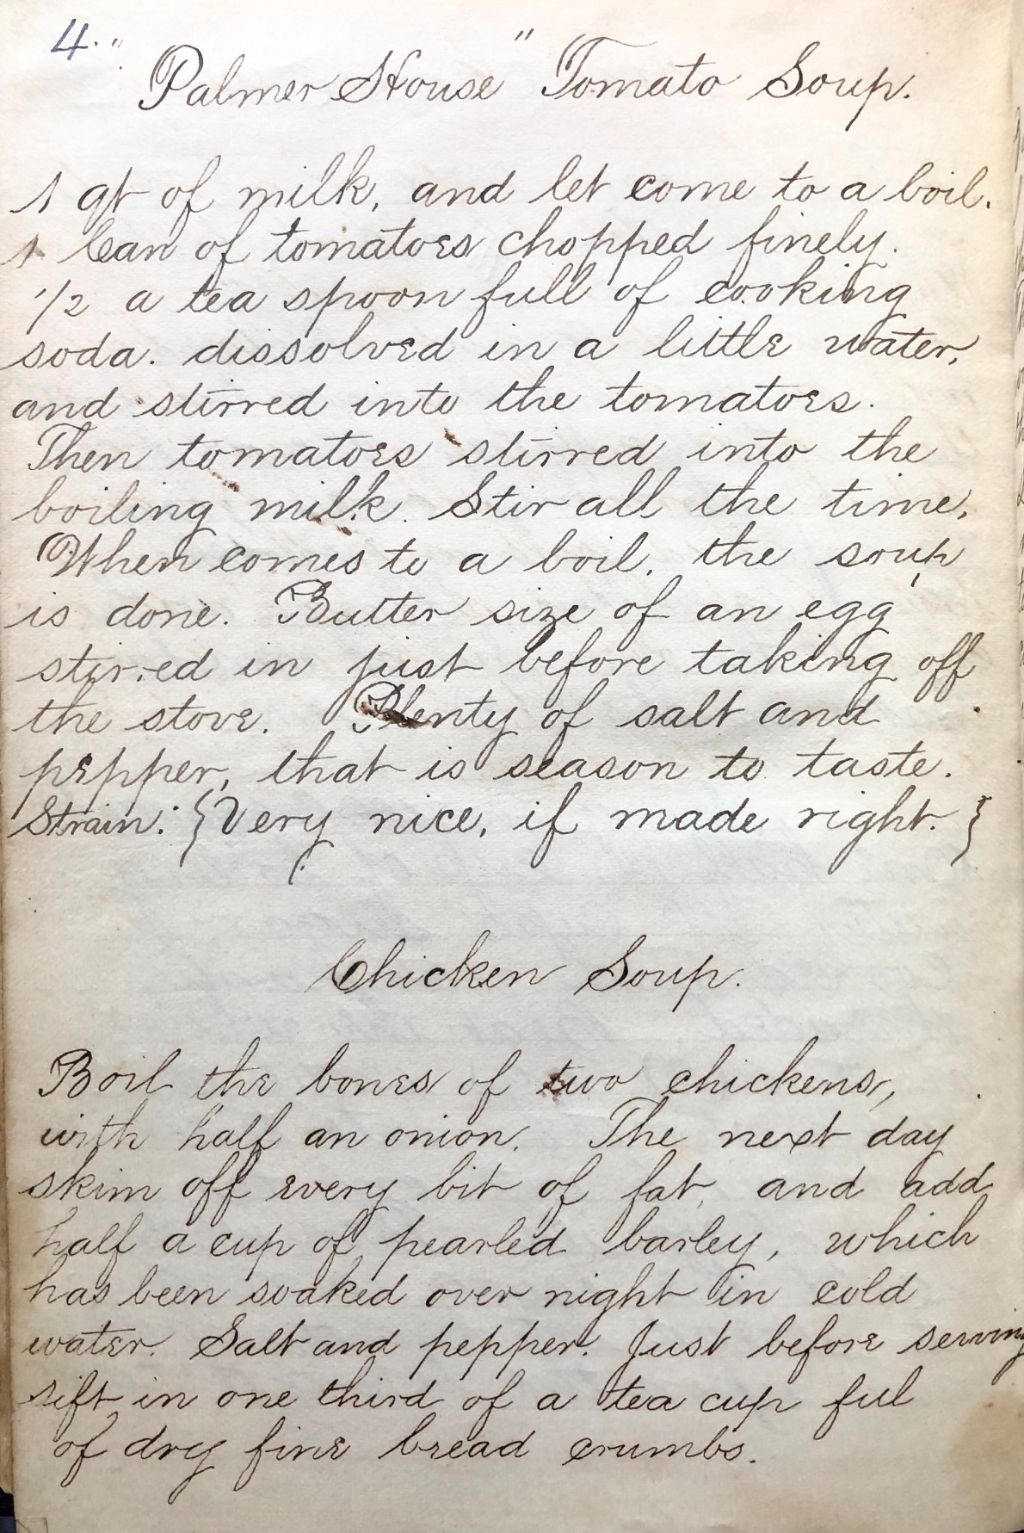 4.
"Palmer House" Tomato Soup.
1 qt of milk, and let come to a boil.
1 Can of tomatoes chopped finely.
1/2 a tea spoon full of cooking
soda. dissolved in a little water,
and stirred into the tomatoes.
Then tomatoes stirred into the
boiling milk. Stir all the time.
When comes to a boil. the soup
is done. Butter size of an egg
stirred in just before taking off
the stove. Plenty of salt and
pepper, that is season to taste.
Strain. {Very nice, if made right.}
Chicken Soup.
Boil the bones of two chickens,
with half an onion. The next day
skim off every bit of fat, and add
half a cup of pearled barley, which
has been soaked over night in cold
water. Salt and pepper. Just before serving
sift in one third of a tea cup ful
of dry fine bread crumbs.